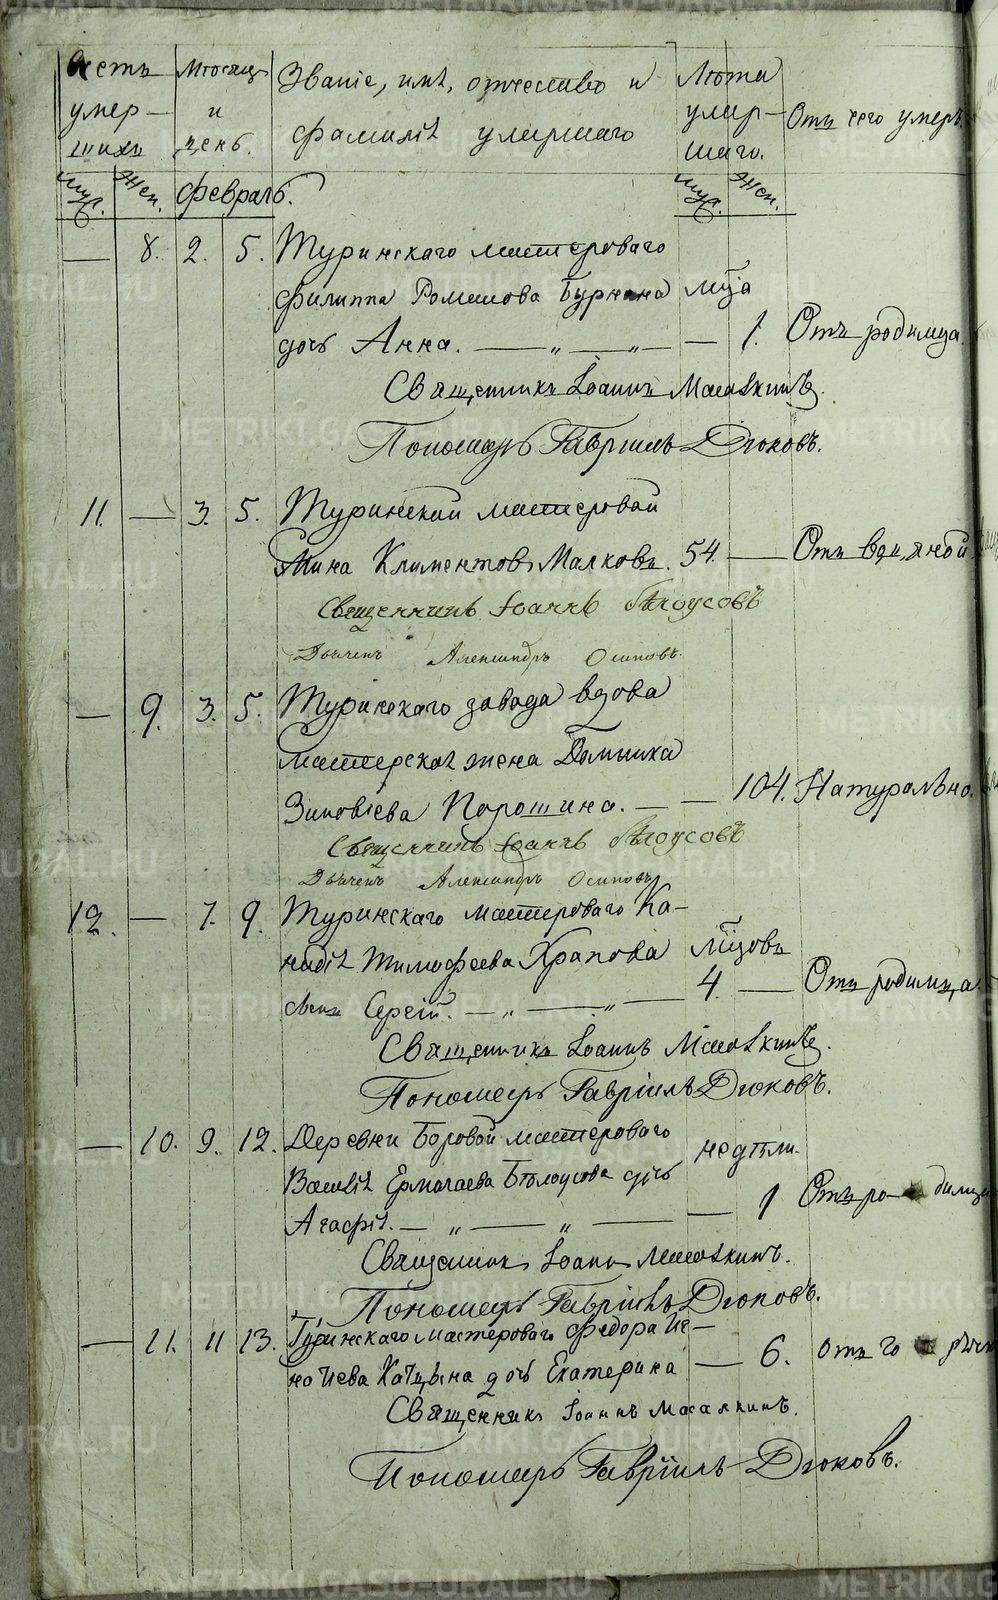 Счетъ Мѣсяцъ Званіе, имя, отчество и Лѣта
умер- и фамилія умершаго умер- Отъ чего умеръ
шихъ день. шаго.
Муж. Жен. Февраль. Муж. Жен.
— 8. 2. 5. Туринскаго мастероваго
Филиппа Романова мца
дочь Анна. — „ — „ — — 1. Отъ родимца.
Священникъ Іоаннъ Масалкинъ.
Пономарь Гавріилъ Дюковъ.
11. — 3. 5. Туринскій мастеровой
Мина Климентовъ Малковъ. 54. — Отъ
Священникъ Іоаннъ Бѣлоусовъ
Дьячекъ Александръ Осиповъ.
— 9. 3. 5. Туринскаго завода вдова
мастерская жена Домника
Зиновіева Порошина. — — 104. Натурально.
Священникъ Іоаннъ Бѣлоусовъ
Дьячекъ Александръ Осиповъ
12. — 7. 9. Туринскаго мастероваго
Тимофеева Храпова мцовъ
сынъ Сергій. — „ — „ — 4. — Отъ родимца.
Священникъ Іоаннъ Масалкинъ.
Пономарь Гавріилъ Дюковъ.
— 10. 9. 12. Деревни Боровой мастероваго недѣли
Василія Ермолаева Бѣлоусова дочь
Агафія. — „ — „ — — 1 Отъ ро- димца
Священникъ Іоаннъ Масалкинъ.
Пономарь Гавріилъ Дюковъ.
— 11. 11 13. Туринскаго мастероваго Федора
дочь Екатерина — 6. отъ го рячк
Священникъ Іоаннъ Масалкинъ.
Пономарь Гавріилъ Дюковъ.
METRIKI.GASO-URAL.RU